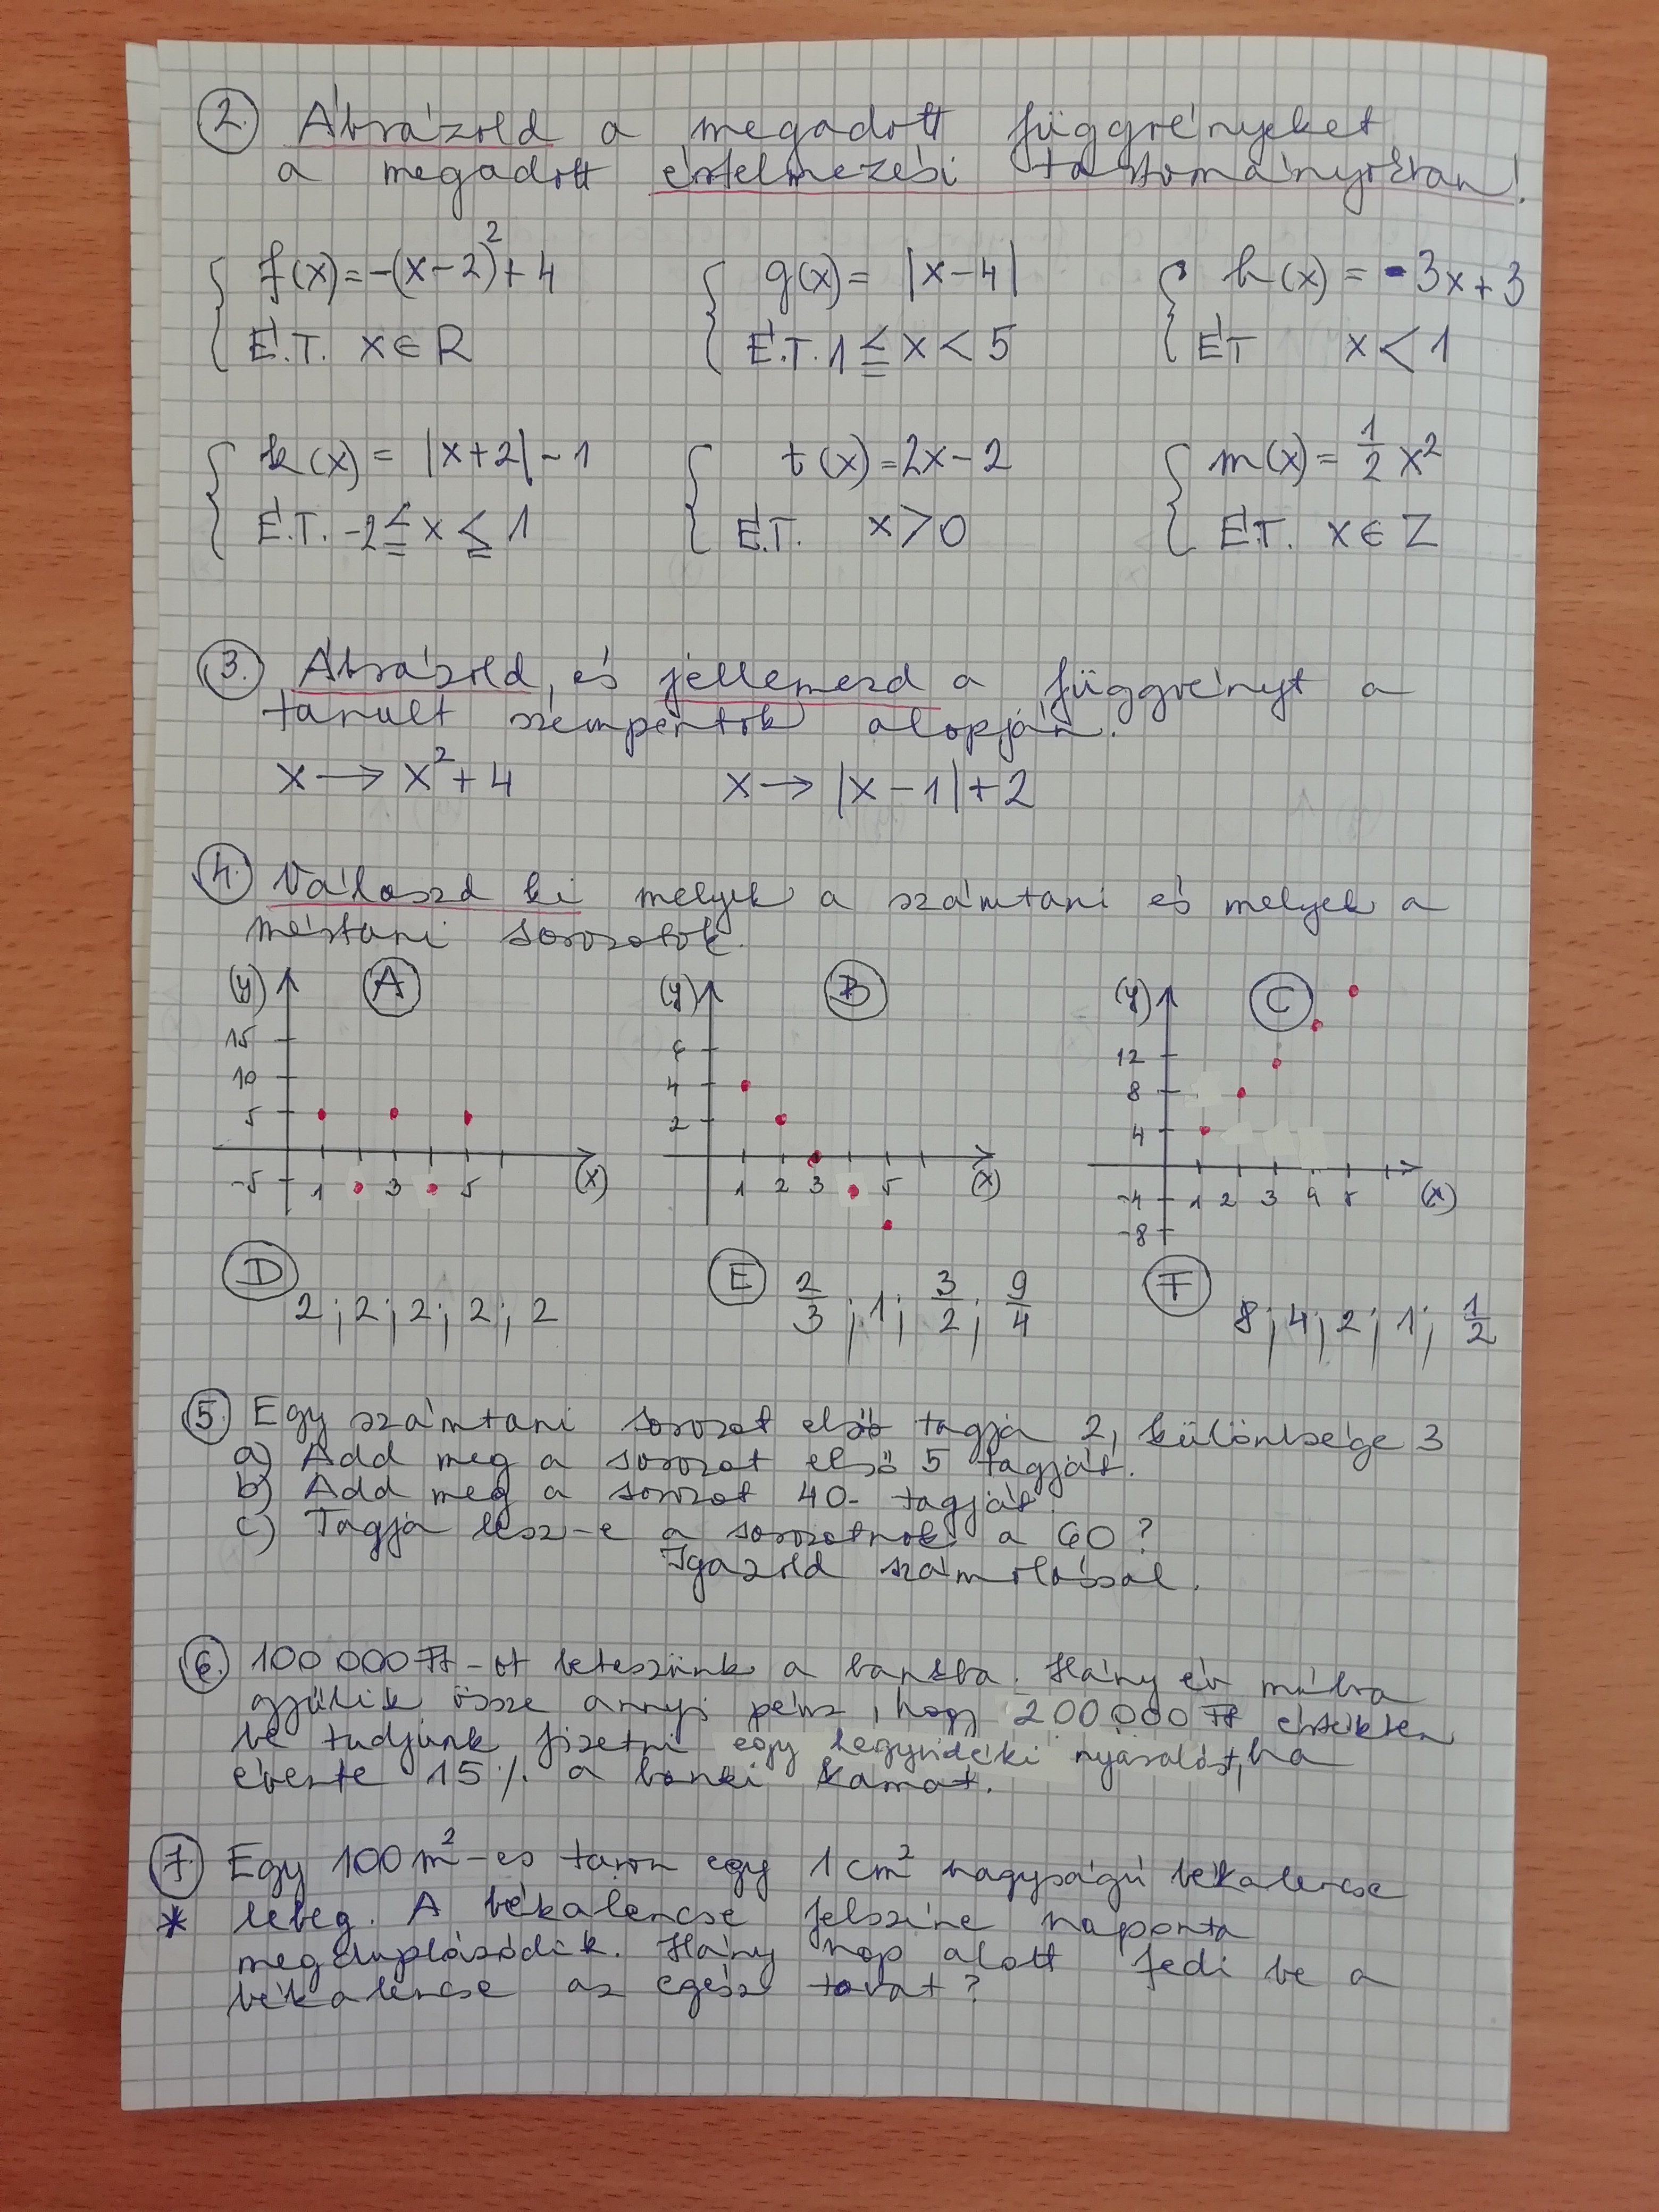 2. Ábrázold a megadott függvényeket
a megadott értelmezési tartományokban!
f(x)=-(x-2)²+4 g(x)=|x-4| h(x)=-3x+3
É.T. x∈R É.T. 1≦x<5 ÉT x<1
k(x)=|x+2|-1 t(x)=2x-2 m(x)=1/2 x²
É.T. -2≦x≦1 É.T. x>0 É.T. x∈Z
3. Ábrázold, és jellemezd a függvényt a
tanult szempontok alapján.
x→x²+4 x→|x-1|+2
4. Válaszd ki melyek a számtani és melyek a
mértani sorozatok.
(y) A (y) B (y) C
15 6 12
10 4 8
5 2 4
-5 1 3 5 (x) 1 2 3 5 (x) -4 1 2 3 4 5 (x)
-8
D 2; 2; 2; 2; 2 E 2/3; 1; 3/2; 9/4 F 8; 4; 2; 1; 1/2
5. Egy számtani sorozat első tagja 2, különbsége 3
a) Add meg a sorozat első 5 tagját.
b) Add meg a sorozat 40. tagját.
c) Tagja lesz-e a sorozatnak a 60?
Igazold számolással.
6. 100 000 Ft-ot beteszünk a bankba. Hány év múlva
gyűlik össze annyi pénz, hogy 200 000 Ft értékben
be tudjunk fizetni egy hegyvidéki nyaralást, ha
évente 15% a banki kamat.
7. Egy 100 m²-es tavon egy 1 cm² nagyságú békalencse
* lebeg. A békalencse felszíne naponta
megduplázódik. Hány nap alatt fedi be a
békalencse az egész tavat?